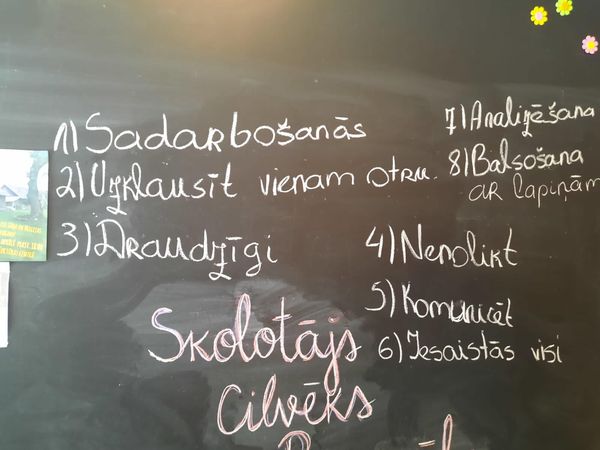 1) Sadarbošanās
2) Uzklausīt vienam otru.
3) Draudzīgi
4) Nenolikt
5) Komunicēt
6) Iesaistās visi
7) Analizēšana
8) Balsošana
ar lapiņām
Skolotājs
Cilvēks